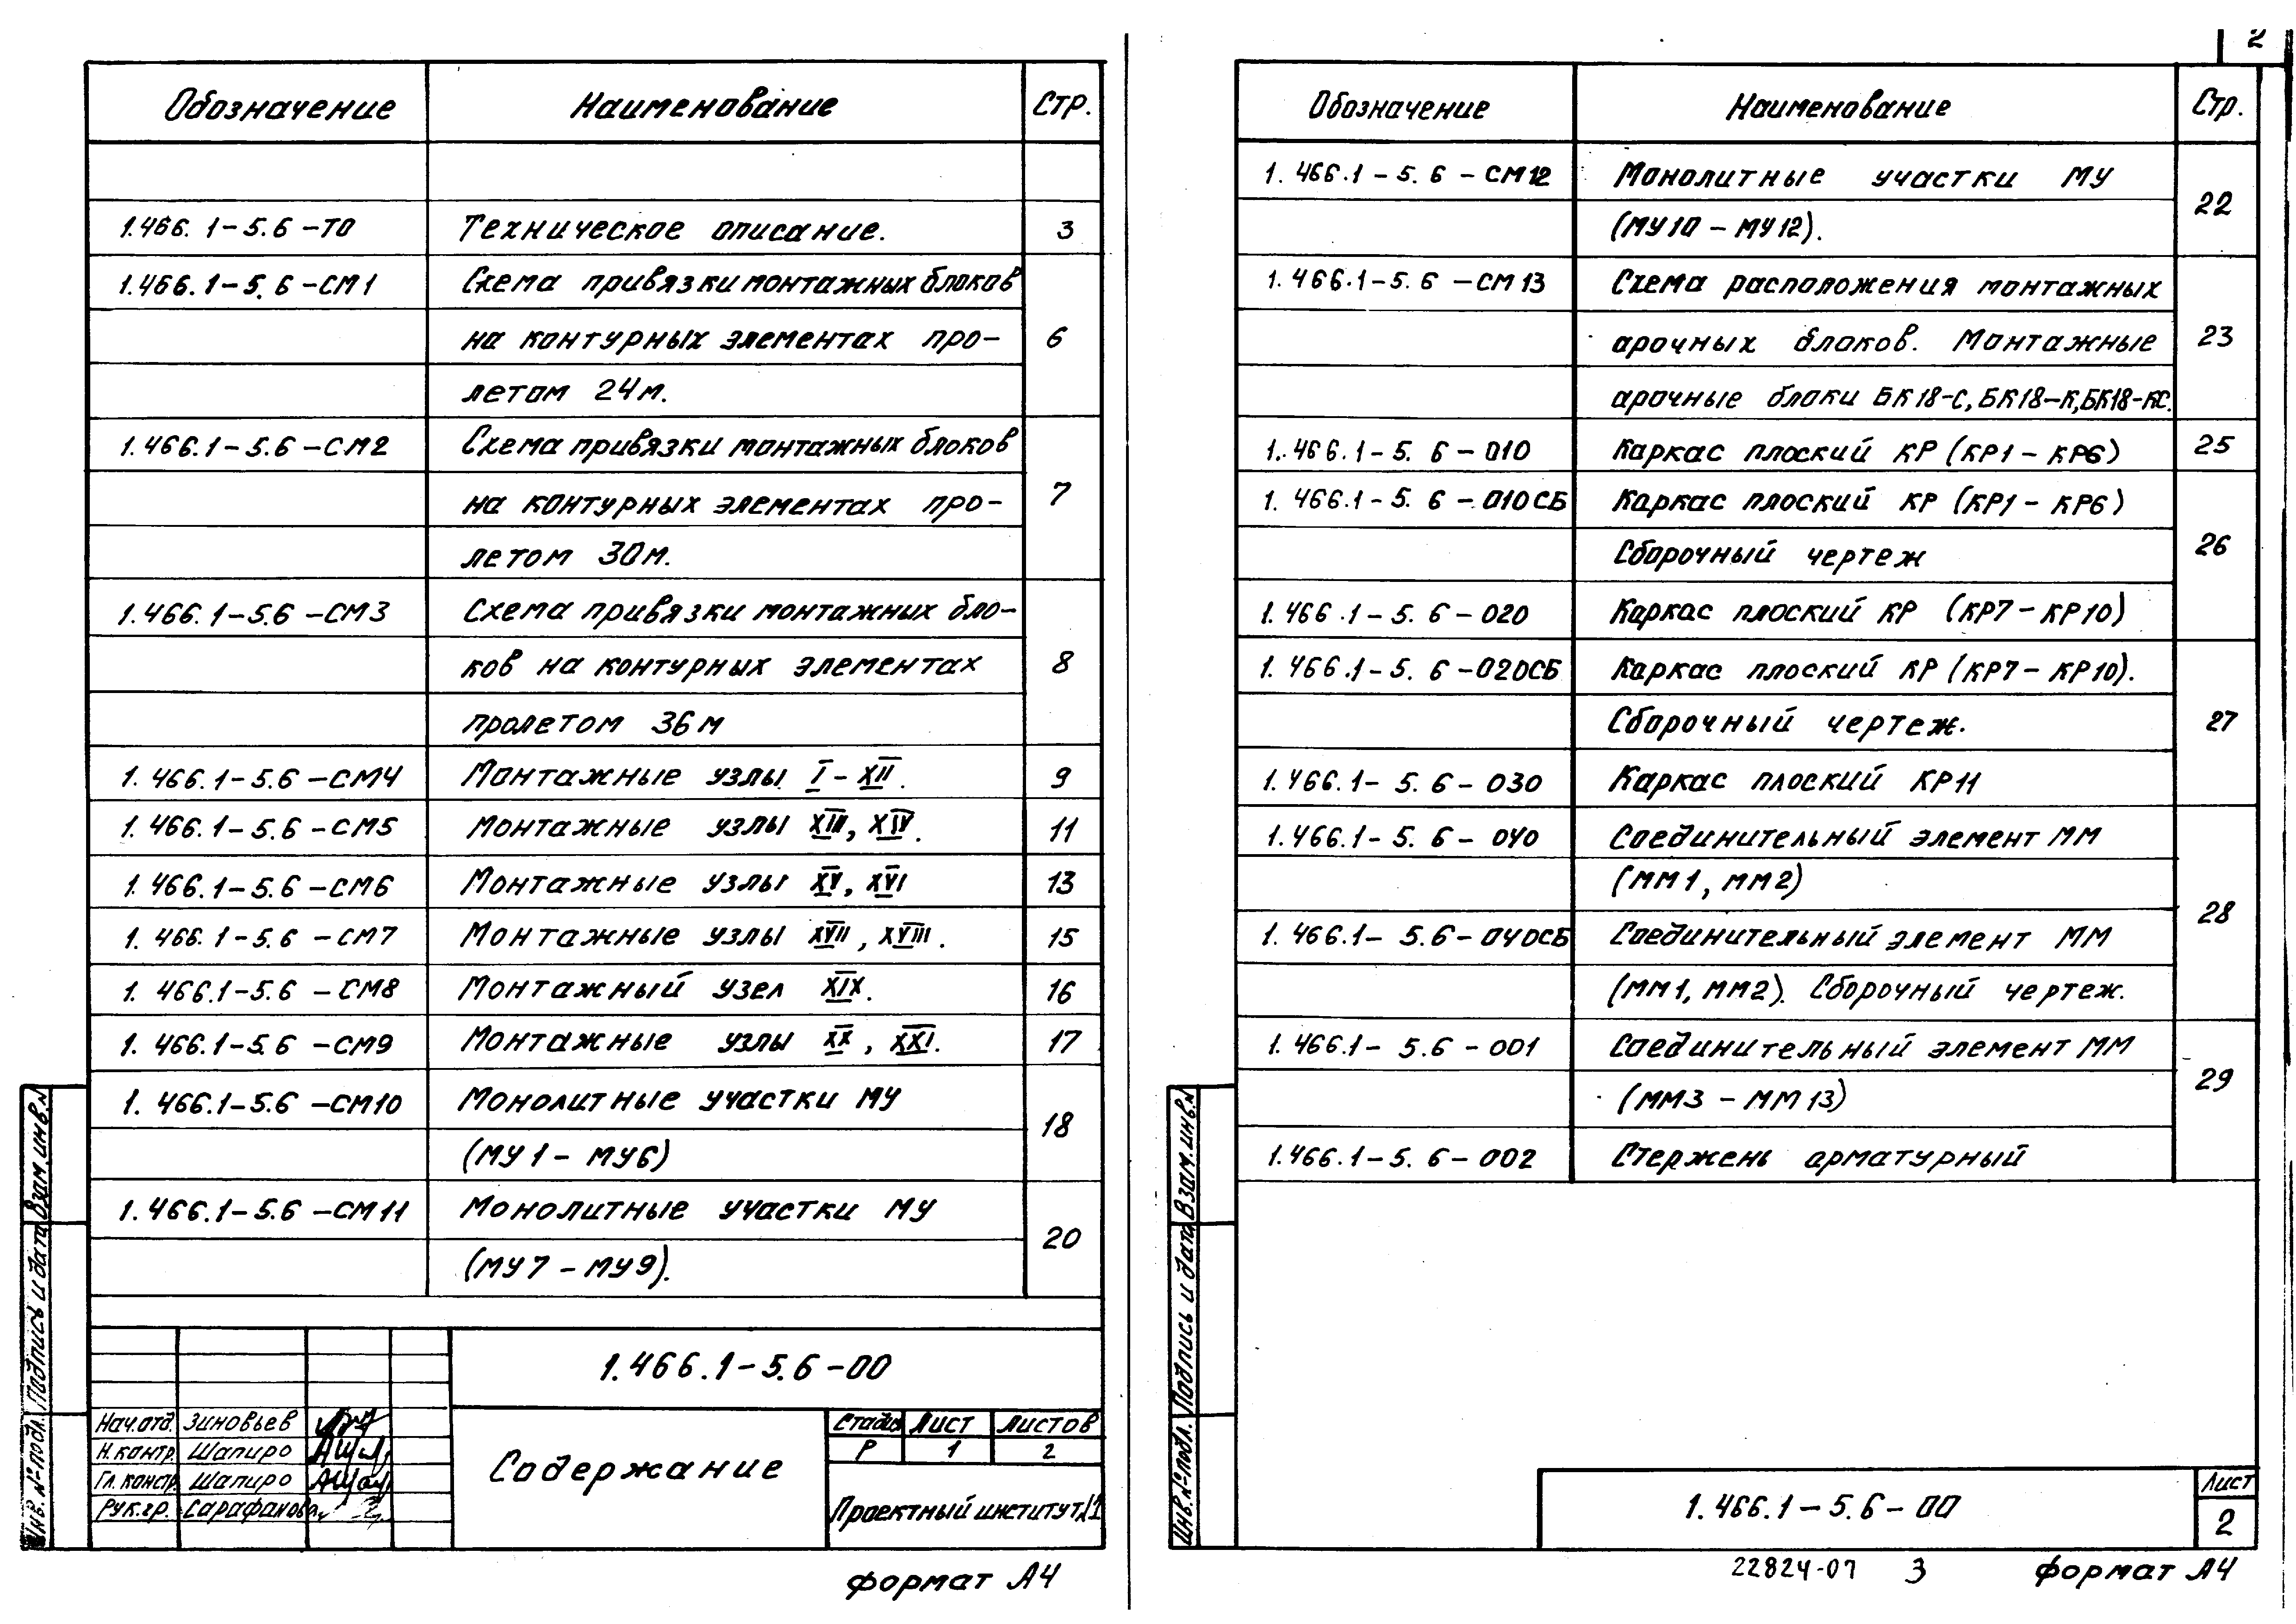 Обозначение Наименование Стр.
1.466.1-5.6-ТО Техническое описание. 3
1.466.1-5.6-СМ1 Схема привязки монтажных блоков
на контурных элементах про- 6
летом 24м.
1.466.1-5.6-СМ2 Схема привязки монтажных блоков
на контурных элементах про- 7
летом 30м.
1.466.1-5.6-СМ3 Схема привязки монтажных бло-
ков на контурных элементах 8
пролетом 36м
1.466.1-5.6-СМ4 Монтажные узлы I-XII. 9
1.466.1-5.6-СМ5 Монтажные узлы XIII, XIV. 11
1.466.1-5.6-СМ6 Монтажные узлы XV, XVI 13
1.466.1-5.6-СМ7 Монтажные узлы XVII, XVIII. 15
1.466.1-5.6-СМ8 Монтажный узел XIX. 16
1.466.1-5.6-СМ9 Монтажные узлы XX, XXI. 17
1.466.1-5.6-СМ10 Монолитные участки МУ
(МУ1-МУ6) 18
1.466.1-5.6-СМ11 Монолитные участки МУ
(МУ7-МУ9). 20
Взам.инв.№
Подпись и дата
Инв.№ подл.
1.466.1-5.6-00
Нач.отд. Зиновьев
Н.контр. Шапиро
Гл.констр. Шапиро
Рук.гр. Сарафанова
Содержание
Стадия Лист Листов
Р 1 2
Проектный институт №1
формат А4
2
Обозначение Наименование Стр.
1.466.1-5.6-СМ12 Монолитные участки МУ
(МУ10-МУ12). 22
1.466.1-5.6-СМ13 Схема расположения монтажных
арочных блоков. Монтажные 23
арочные блоки БК18-С, БК18-К, БК18-КС.
1.466.1-5.6-010 Каркас плоский КР (КР1-КР6) 25
1.466.1-5.6-010СБ Каркас плоский КР (КР1-КР6)
Сборочный чертеж 26
1.466.1-5.6-020 Каркас плоский КР (КР7-КР10)
1.466.1-5.6-020СБ Каркас плоский КР (КР7-КР10).
Сборочный чертеж. 27
1.466.1-5.6-030 Каркас плоский КР11
1.466.1-5.6-040 Соединительный элемент ММ
(ММ1, ММ2)
28
1.466.1-5.6-040СБ Соединительный элемент ММ
(ММ1, ММ2). Сборочный чертеж.
1.466.1-5.6-001 Соединительный элемент ММ
(ММ3-ММ13) 29
1.466.1-5.6-002 Стержень арматурный
Взам.инв.№
Подпись и дата
Инв.№ подл.
1.466.1-5.6-00
Лист
2
22824-07 3 формат А4